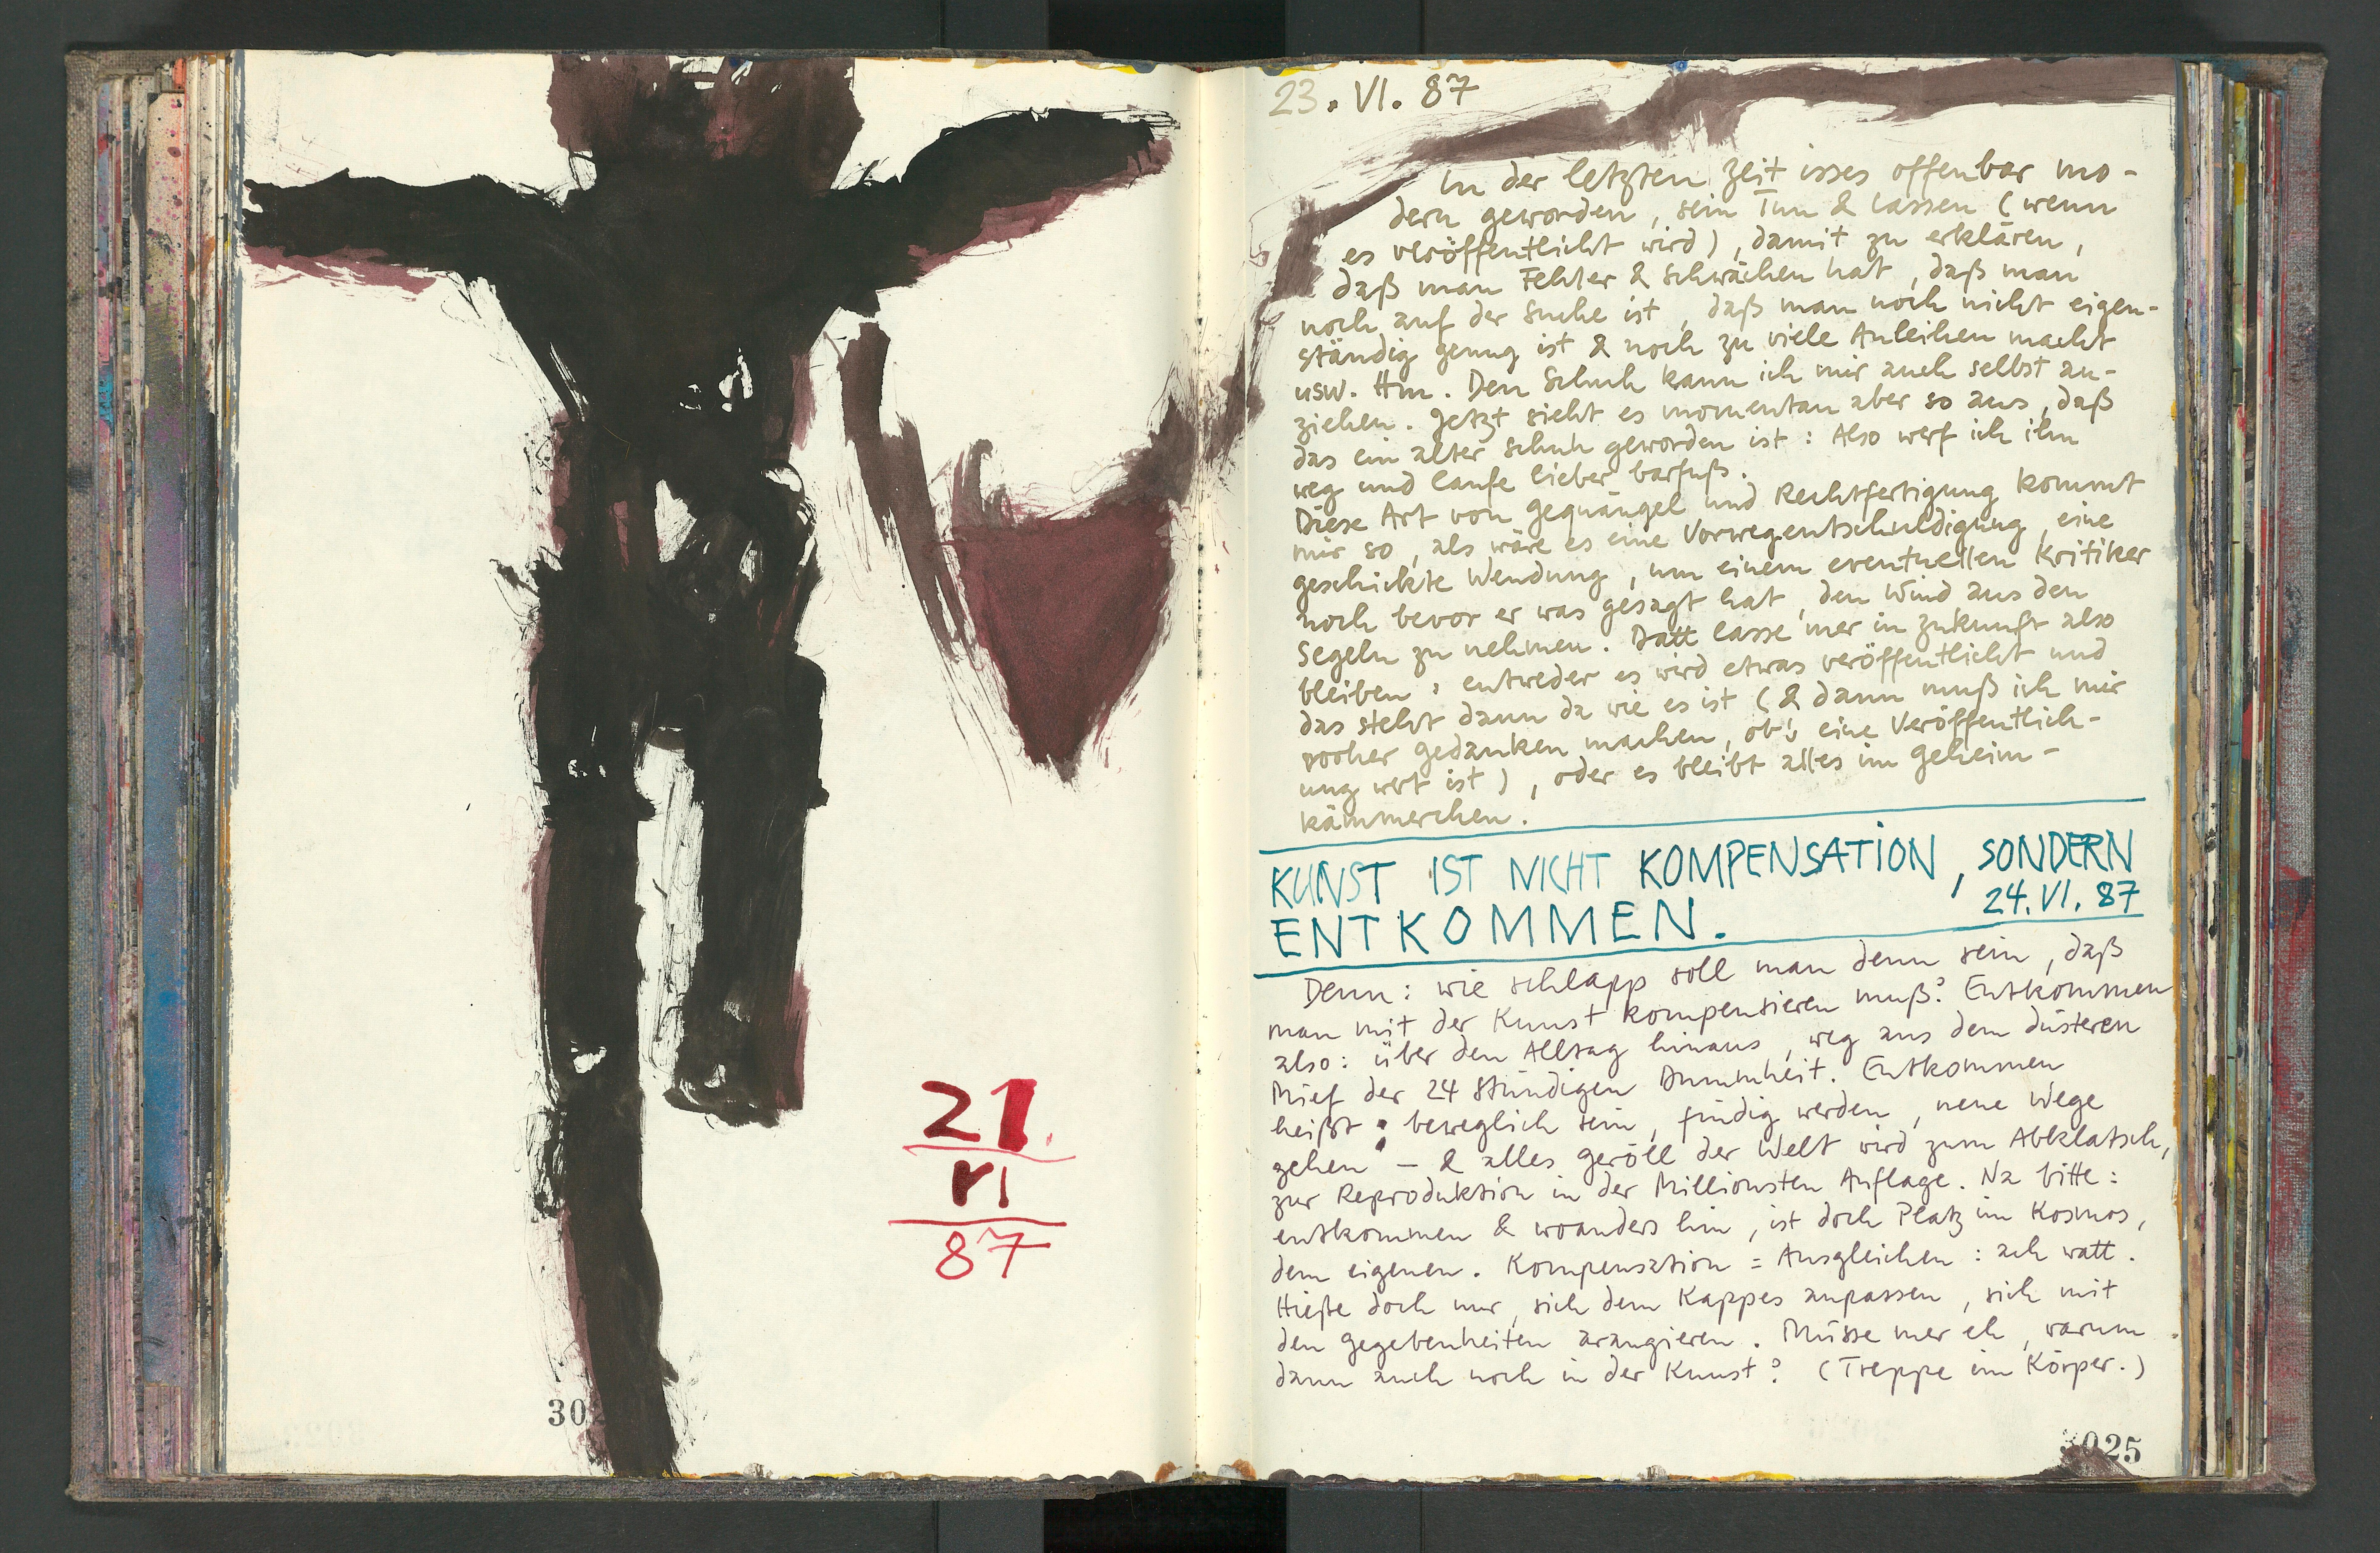 21.
VI
87
302
23. VI. 87
In der letzten Zeit isses offenbar mo-
dern geworden, sein Tun & lassen (wenn
es veröffentlicht wird), damit zu erklären,
daß man Fehler & Schwächen hat, daß man
noch auf der Suche ist, daß man noch nicht eigen-
ständig genug ist & noch zu viele Anleihen macht
usw. Hm. Den Schuh kann ich mir auch selbst an-
ziehen. Jetzt sieht es momentan aber so aus, daß
das ein alter Schuh geworden ist: Also werf ich ihn
weg und laufe lieber barfuß.
Diese Art von Gequängel und Rechtfertigung kommt
mir so, als wäre es eine Vorwegentschuldigung, eine
geschickte Wendung, um einem eventuellen Kritiker
noch bevor er was gesagt hat, den Wind aus den
Segeln zu nehmen. Datt lasse mer in Zukunft also
bleiben: entweder es wird etwas veröffentlicht und
das steht dann da wie es ist (& dann muß ich mir
vorher Gedanken machen, ob's eine Veröffentlich-
ung wert ist), oder es bleibt alles im Geheim-
kämmerchen.
KUNST IST NICHT KOMPENSATION, SONDERN
ENTKOMMEN.
24. VI. 87
Denn: wie schlapp soll man denn sein, daß
man mit der Kunst kompensieren muß? Entkommen
also: über den Alltag hinaus, weg aus dem düsteren
Mief der 24 Stündigen Dummheit. Entkommen
heißt: beweglich sein, fündig werden, neue Wege
gehen – & alles Geröll der Welt wird zum Abklatsch,
zur Reproduktion in der Millionsten Auflage. Na bitte:
entkommen & woanders hin, ist doch Platz im Kosmos,
dem eigenen. Kompensation = Ausgleichen: ach watt.
Hieße doch nur, sich dem Kappes anpassen, sich mit
den Gegebenheiten arangieren. Müsse mer eh, warum
dann auch noch in der Kunst? (Treppe im Körper.)
3025